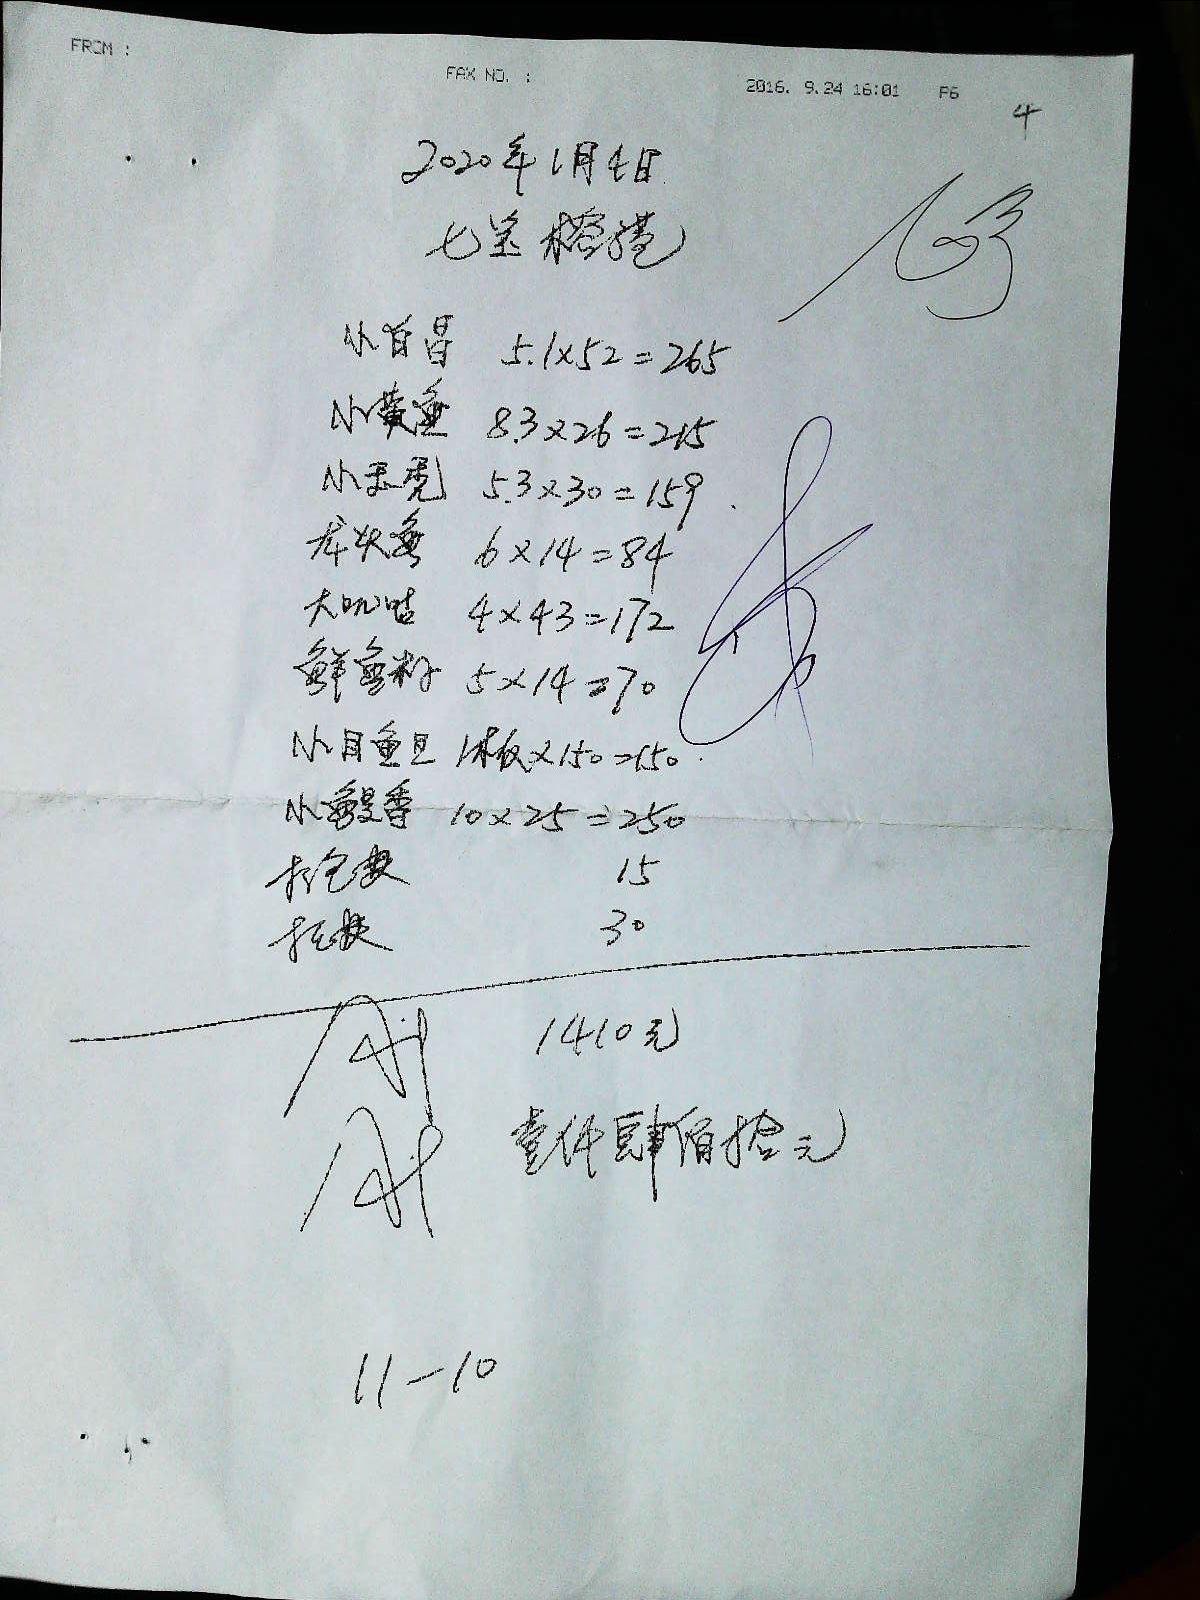 FROM :
FAX NO. :
2016. 9.24 16:01 P6
4
2020年1月4日
七宝
小目昌 5.1×52=265
小黄鱼 8.3×26=215
小玉秃 5.3×30=159
龙头鱼 6×14=84
大叽咕 4×43=172
鲜鱼籽 5×14=70
小目鱼旦 1板×150=150
小鳗香 10×25=250
打包费 15
拉费 30
1410元
壹仟肆佰拾元
11-10